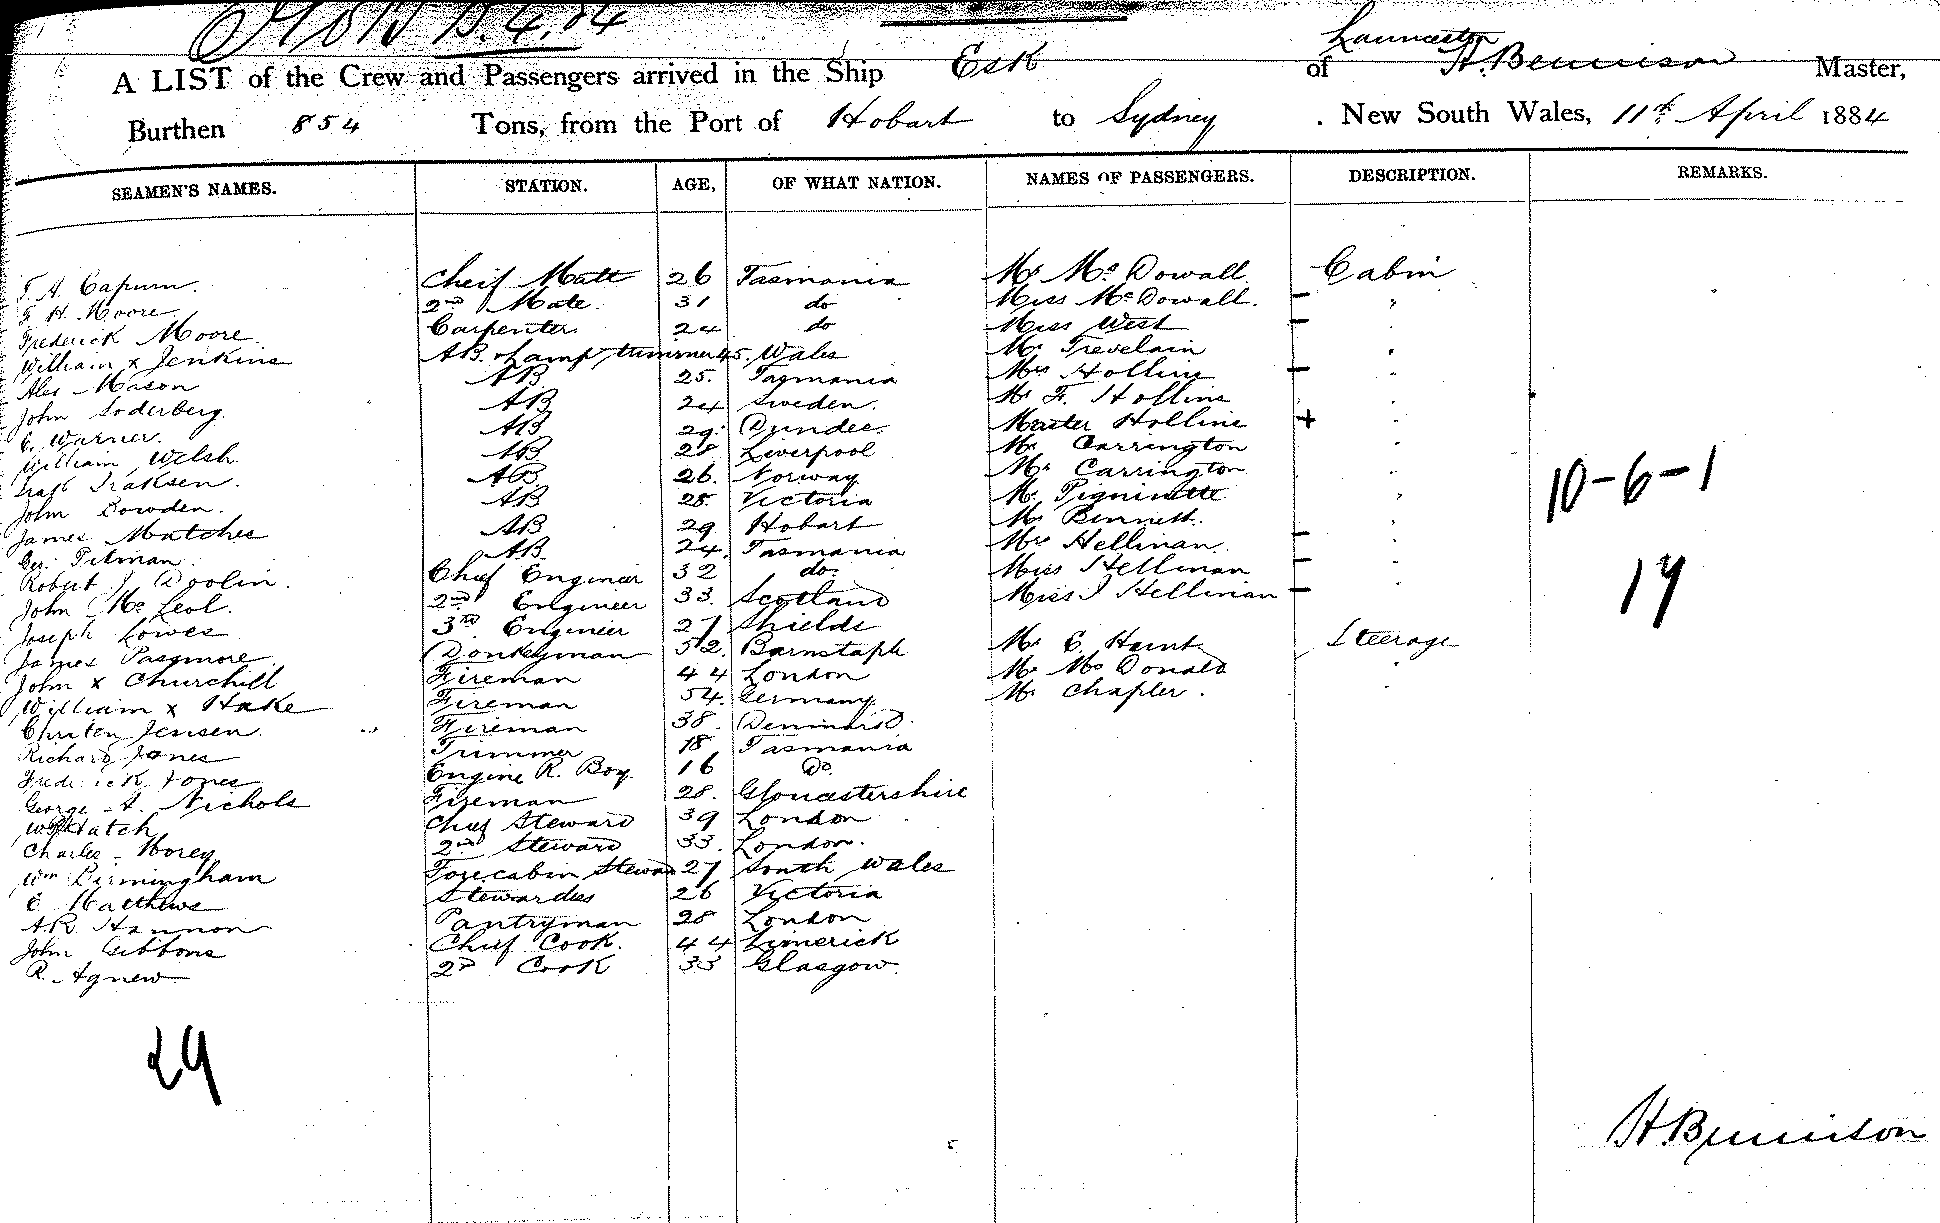 Launceston
A LIST of the Crew and Passengers arrived in the Ship Esk of H. Bennison Master,
Burthen 854 Tons, from the Port of Hobart to Sydney. New South Wales, 11th April 1884
SEAMEN'S NAMES. STATION. AGE, OF WHAT NATION. NAMES OF PASSENGERS. DESCRIPTION. REMARKS.
A. Capurn. Cheif Matt 26 Tasmania Mr Mc Dowall Cabin
H. Moore. 2nd Mate. 31 do Miss McDowall. "
Frederick Moore. Carpenter. 24 do Miss West "
William x Jenkins AB. & Lamp trimmer 45. Wales Mr Trevelain "
Alex Mason AB 25. Tasmania Mrs Hollins "
John Soderberg. AB 24 Sweden. Mr F. Hollins "
C. Warner. AB 29. Dundee. Master Hollins "
William Welsh AB 28 Liverpool Mr Carrington "
Iraksen. AB. 26. Norway Mr Carrington "
John Dowden. AB 28. Victoria Mr "
James Matches AB 29 Hobart Mr Bennett. "
Geo. Pitman. AB. 24. Tasmania Mrs Hellinan. "
Robert J Doolin. Chief Engineer 32 do. Miss Hellinan "
John Mc Leol. 2nd Engineer 33. Scotland Miss J Hellinan "
Joseph Lowes 3rd Engineer 27 Shields
James Passmore. Donkeyman 52. Barnstaple Mr C. Hunt Steerage
John x Churchill Fireman 44 London Mr Mc Donald
William x Hake Fireman 54. Germany Mr Chapler. "
Christen Jensen. Fireman 38. Denmark.
Richard Jones Trimmer 18 Tasmania
Frederick Jones Engine R. Boy. 16 Do.
George A. Nichols Fireman 28. Gloucestershire
Hatch Chief Steward 39 London
Charles Horey 2nd Steward 33. London.
Wm Birmingham Forecabin Steward 27 South Wales
E Matthews Stewardess 26 Victoria
A.R. Hannon Pantryman 28 London
John Gibbons Chief Cook. 44 Limerick
R. Agnew 2nd Cook 33 Glasgow.
10-6-1
17
29
H. Bennison